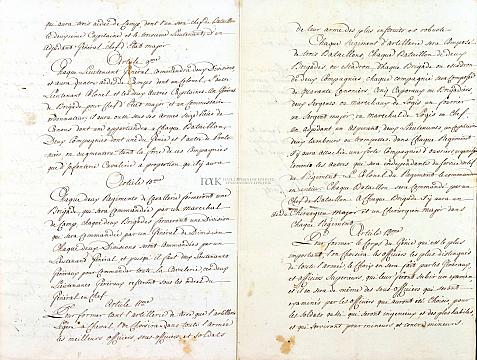 qui aura trois aides de Camp, dont l'un sera chef de Bataillon
le deuxieme Capitaine et le troisieme Lieutenant et un
adjudant Général chef d'état major
Article 9me
Chaque Lieutenant Général Commandera deux Divisions
et aura quatre aides de Camps dont un Colonel, l'autre
Lieutenant Colonel et les deux autres Capitaines. Un Général
de Brigade pour chef d'Etat major et un Commissaire
ordonnateur; il aura outre
Canons dont une appartiendra à chaque Bataillon,
Deux Compagnies dont une de Génie et l'autre
en augmentera tant la force de ces Compagnies
que d'infanterie Cavalerie à proportion qu'il y aura
Article 10me
Chaque deux Regiments de Cavallerie formeront une
Brigade, qui sera commandée par un marechal
de Camp, chaque deux Brigades formeront une Division
qui sera Commandée par un Général de Division
Chaque deux Divisions seront commandées par un
Lieutenant Général et puisqu'il faut deux Lieutenants
Généraux pour Commander toute la Cavalerie, ces deux
Lieutenants Généraux resteront sous les ordres du
Général en Chef
Article 11me
Pour former tant l'artillerie de terre que l'artillerie
légère à Cheval, l'on choisira dans toute l'armée
les meilleurs officiers, sous-officiers et soldats
de leur arme des plus instruits et robustes
Chaque Regiment d'artillerie sera Composé
de trois Bataillons, Chaque Bataillon de deux
Brigades ou escadron, chaque Brigade ou escadron
de deux Compagnies, chaque compagnie sera Composée
de soixante Canoniers, Cinq Caporaux ou Brigadiers,
deux Sergents ou marechaux de logis, un fourrier
un Sergent major, ou marechal de Logis en chef,
un adjudant un aspirant, deux Lieutenants un capitaine
deux tambours ou trompettes. Dans chaque Regiment
il y aura attachée une forte Compagnie d'ouvriers pour
les autres qui sera independante
du Regiment. Le Colonel du Regiment le commandera
en entier. Chaque Bataillon sera commandé par un
Chef de Bataillon. A chaque Brigade il y aura un
Chirurgien major et un Chirurgien major dans
chaque Regiment
Article 12me
Pour former le Corps du Génie qui est le plus
important, l'on choisira les officiers les plus distingués
de toute l'armée, le Choix en sera fait par les Généraux
et officiers Supérieurs, qui leur feront subir un examen
il en sera de même des sous officiers qui seront
examinés par les officiers que auront été Choisis pour
les soldats aussi qui seront ingenieux et des plus habiles
et qui serviront pour mineurs et contre mineurs